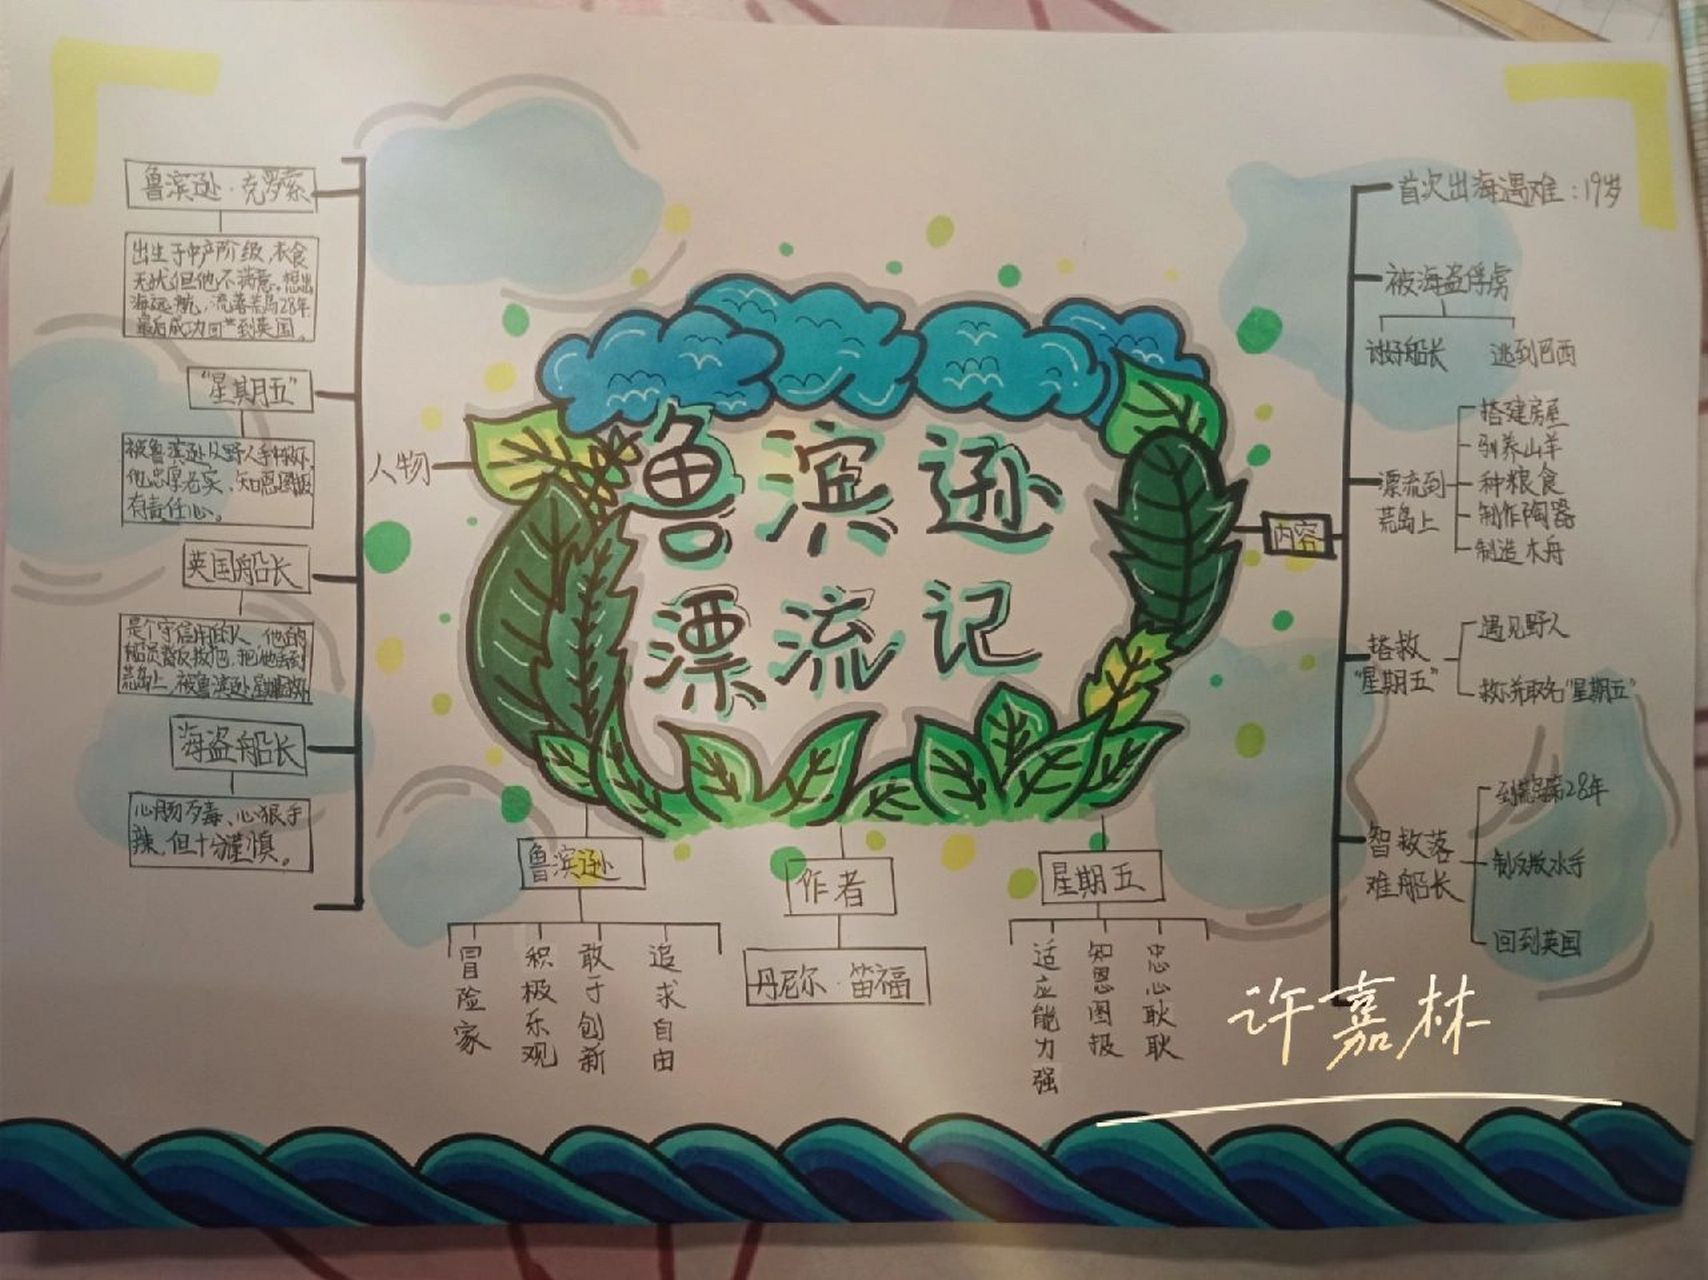 鲁滨逊漂流记
人物
鲁滨逊·克罗索
出生于中产阶级,衣食
无忧,但他不满意。想出
海远航,流落荒岛28年
最后成功回到英国。
“星期五”
被鲁滨逊从野人手中救下,
他忠厚老实、知恩图报
有责任心。
英国船长
是个守信用的人,他的
船员背叛了他,把他丢到
荒岛上,被鲁滨逊
海盗船长
心肠歹毒、心狠手
辣,但十分谨慎。
鲁滨逊
冒险家
积极乐观
敢于创新
追求自由
作者
丹尼尔·笛福
星期五
适应能力强
知恩图报
忠心耿耿
内容
首次出海遇难:19岁
被海盗俘虏
讨好船长
逃到巴西
漂流到
荒岛上
搭建房屋
驯养山羊
种粮食
制作陶器
制造木舟
搭救
“星期五”
遇见野人
救济取名“星期五”
智救落
难船长
到荒岛第28年
制反叛水手
回到英国
许嘉林